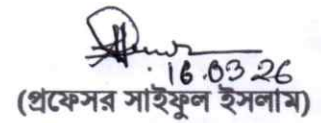 16.03.26
(প্রফেসর সাইফুল ইসলাম)